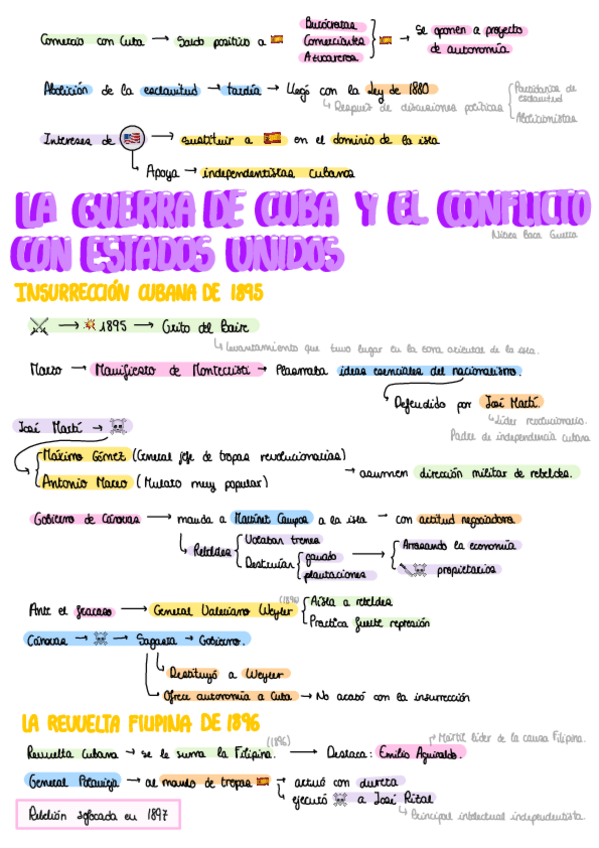 Burócratas
Comercio con Cuba → Saldo positivo a 🇪🇸 Comerciantes 🇪🇸 → Se oponen a proyecto
Azucareros de autonomía
Abolición de la esclavitud → tardía → Llegó con la Ley de 1880 Partidarios de esclavitud
↳ Después de discusiones políticas Abolicionistas
Intereses de 🇺🇸 → sustituir a 🇪🇸 en el dominio de la isla
Apoya → independentistas cubanos
LA GUERRA DE CUBA Y EL CONFLICTO
CON ESTADOS UNIDOS
Nieves Baca Guerra
INSURRECCIÓN CUBANA DE 1895
⚔ → 💥 1895 → Grito del Baire
↳ Levantamiento que tuvo lugar en la zona oriental de la isla.
Marzo → Manifiesto de Montecristi → Plasmaba ideas esenciales del nacionalismo.
Defendido por José Martí.
↳ Líder revolucionario.
José Martí → ☠
Padre de independencia cubana
Máximo Gómez (General jefe de tropas revolucionarias)
→ asumen dirección militar de rebeldes.
Antonio Maceo (Mulato muy popular)
Gobierno de Cánovas → manda a Martínez Campos a la isla → con actitud negociadora
↳ Rebeldes Volaban trenes
Destruían ganado → Arrasando la economía
plantaciones 🔪☠ propietarios
Ante el fracaso → General Valeriano Weyler (1896) Aísla a rebeldes
Practica fuerte represión
Cánovas → ☠ → Sagasta → Gobierno.
↳ Destituyó a Weyler
↳ Ofrece autonomía a Cuba → No acabó con la insurrección
LA REVUELTA FILIPINA DE 1896
↱ Mártir líder de la causa Filipina.
Revuelta Cubana → se le suma la Filipina. (1896) → Destaca: Emilio Aguinaldo.
General Polavieja → al mando de tropas 🇪🇸 → actuó con dureza
↳ ejecutó ☠ a José Rizal
↳ Principal intelectual independentista.
Rebelión sofocada en 1897